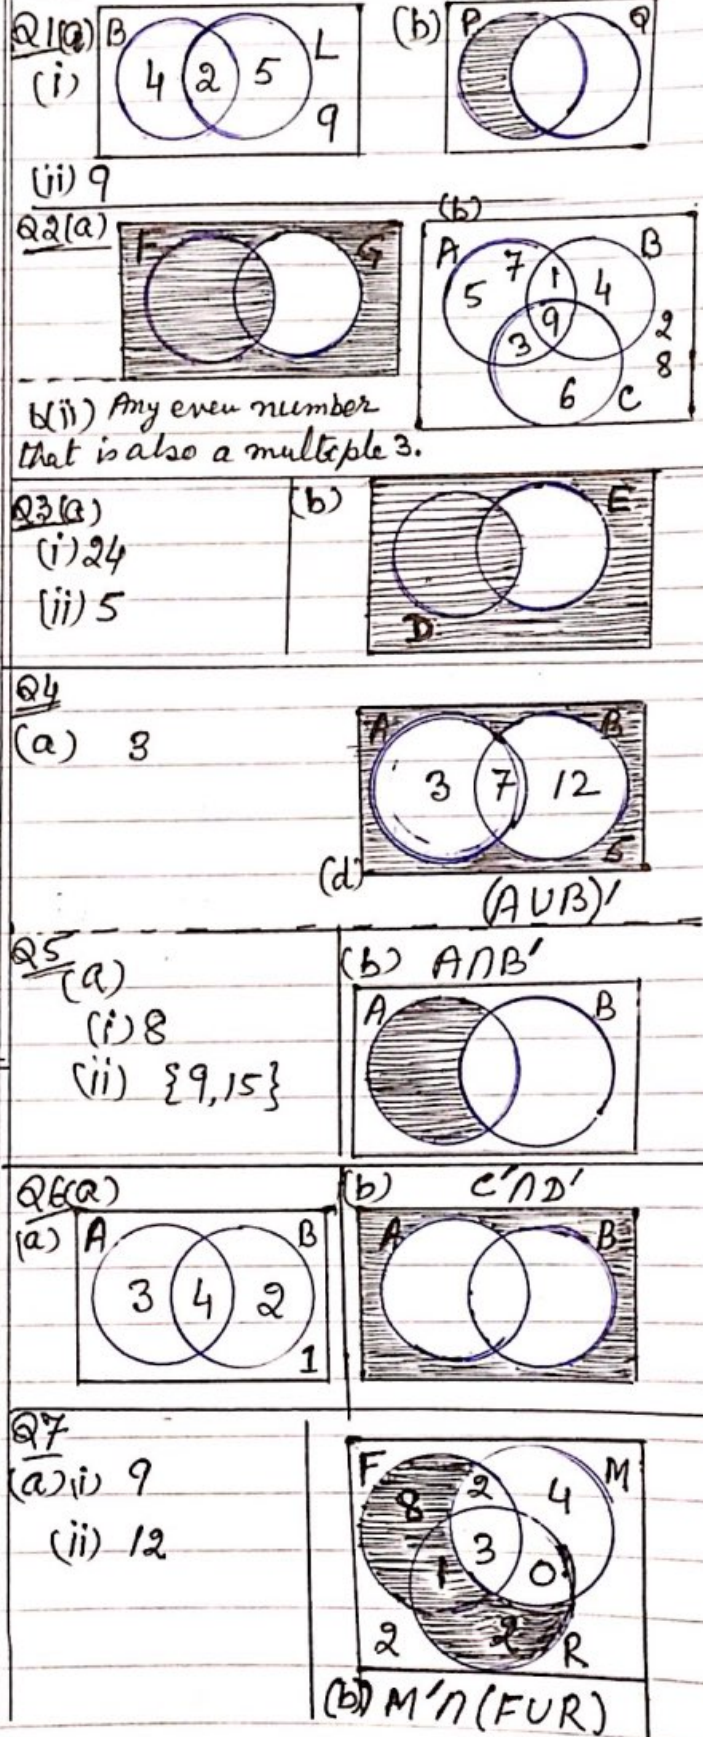 Q1(a)
(i)
B 4 2 5 L
9
(b)
P Q
(ii) 9
Q2(a)
F G
(b)
A 7 B
5 1 4
9 2
3 8
6 C
b(ii) Any even number
that is also a multiple 3.
Q3(a)
(i) 24
(ii) 5
(b)
E
D
Q4
(a) 3
A B
3 7 12
5
(d)
(A∪B)'
Q5
(a)
(i) 8
(ii) {9,15}
(b) A∩B'
A B
Q6(a)
(a) A B
3 4 2
1
(b) C'∩D'
A B
Q7
(a)(i) 9
(ii) 12
F M
8 2 4
3
1 0
2 2 R
(b) M'∩(F∪R)